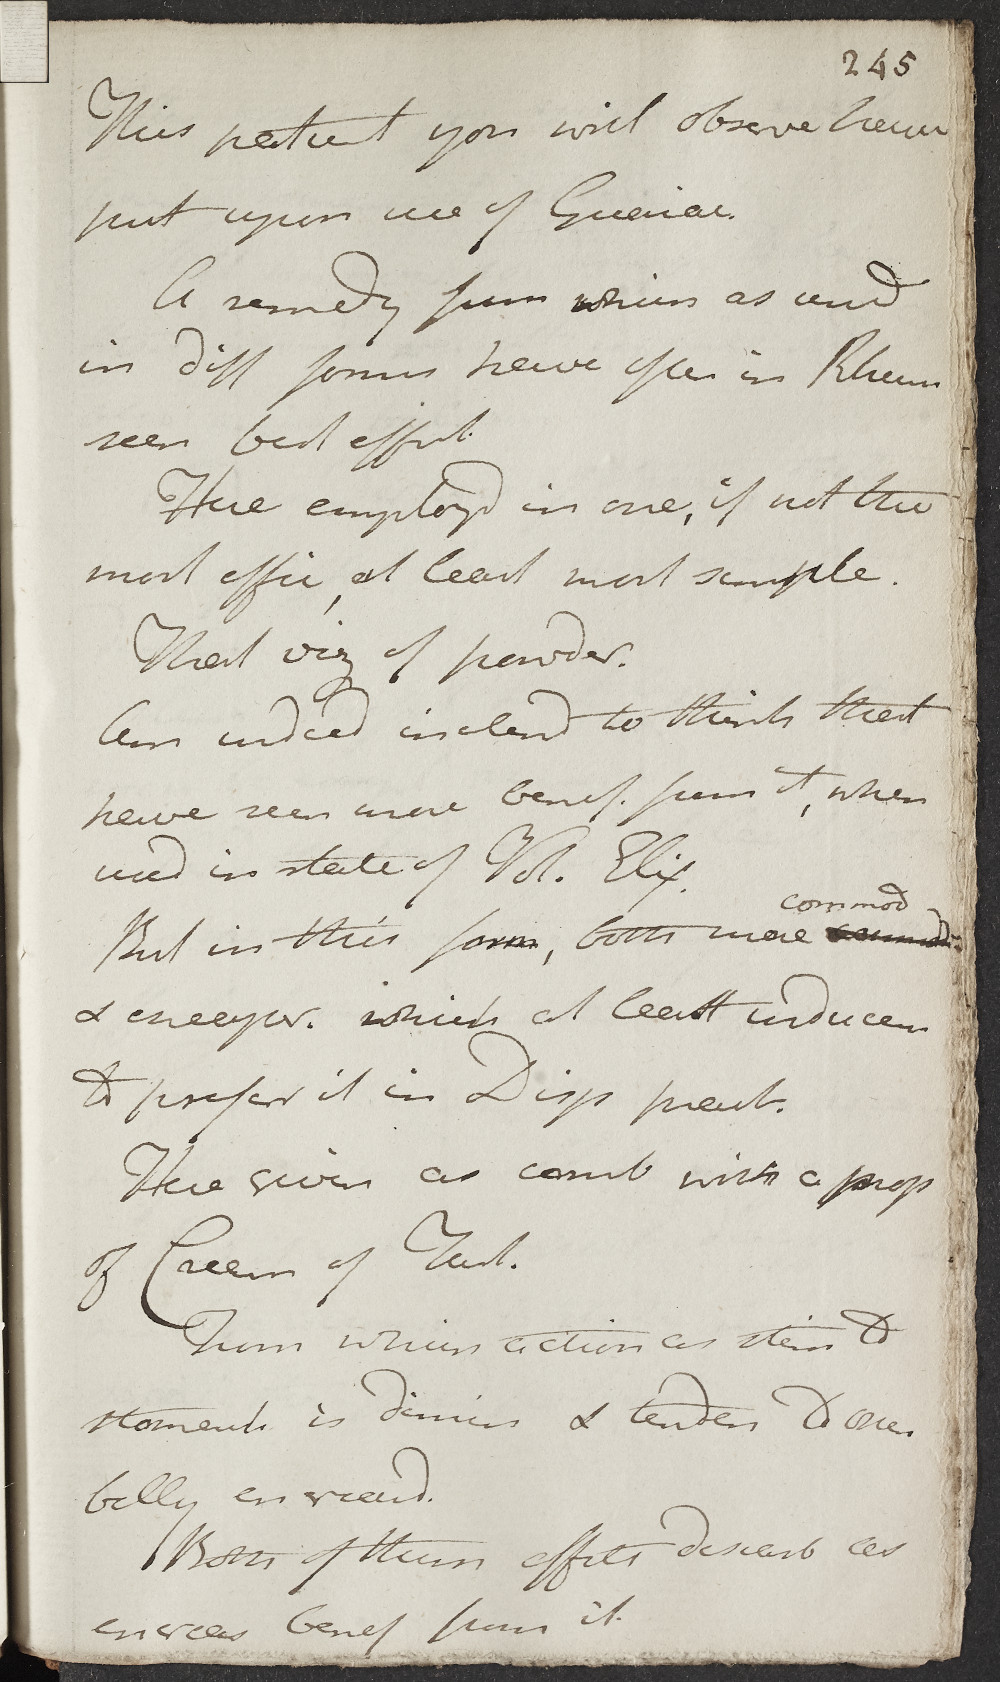 245
This patient you will observe have
put upon use of Guaiac.
A remedy from which as used
in diff forms have often in Rheum
seen best effect.
Here employd in one, if not the
most effic, at least most simple.
That viz of powder.
Am indeed inclend to think that
have seen more benef. from it, when
used in state of Vol. Elix.
commod
But in this form, both more
& cheaper. which at least induces
to prefer it in Disp pract.
Here given as comb with a prop
of Cream of Tart.
From which action as stim to
stomach is dimin & tenden to open
belly encreasd.
Both of them effects describ as
encreas benef from it.